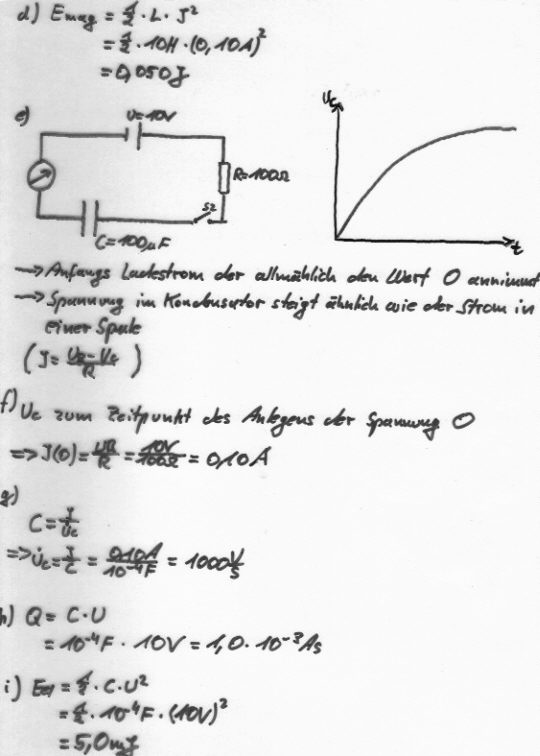 d) Emag = 1/2 · L · I²
= 1/2 · 10H · (0,10A)²
= 0,050J
e)
U=10V
R=100Ω
S2
C=100µF
Uc
t
→ Anfangs Ladestrom der allmählich den Wert 0 annimmt
→ Spannung im Kondensator steigt ähnlich wie der Strom in
einer Spule
(I = (UB - Uc)/R)
f) Uc zum Zeitpunkt des Anlegens der Spannung 0
=> I(0) = UB/R = 10V/100Ω = 0,10A
g)
C = I/U̇c
=> U̇c = I/C = 0,10A/10⁻⁴F = 1000 V/s
h) Q = C·U
= 10⁻⁴F · 10V = 1,0·10⁻³As
i) Eel = 1/2 · C·U²
= 1/2 · 10⁻⁴F · (10V)²
= 5,0mJ